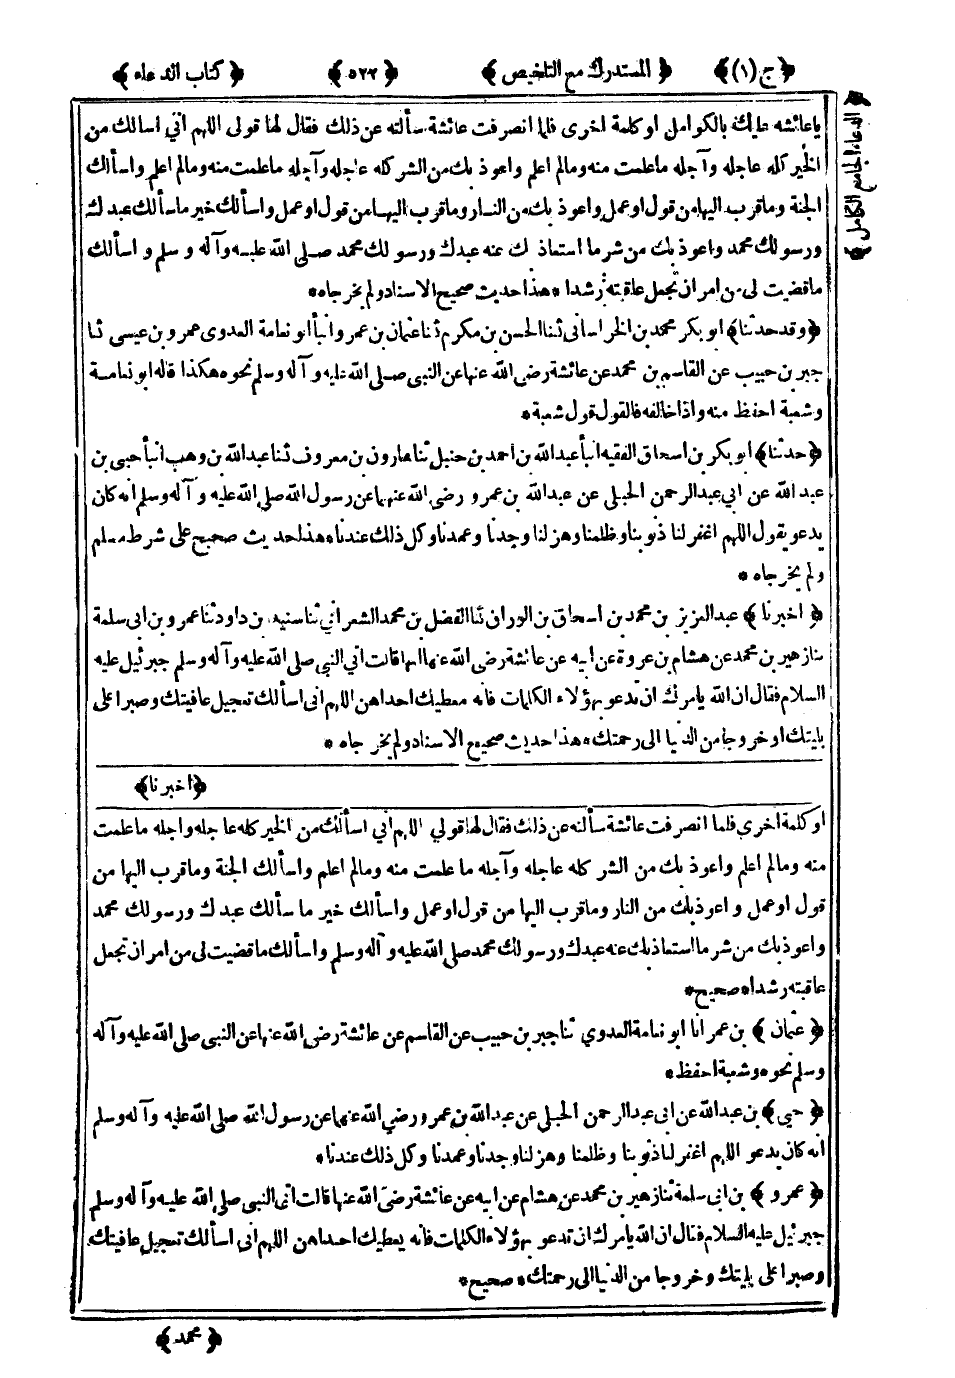 ﴿ج (١)﴾ ﴿المستدرك مع التلخيص﴾ ﴿٥٢٢﴾ ﴿كتاب الدعاء﴾
﴿الدعاء الجامع الكامل﴾
يا عائشه عليك بالكوامل او كلمة اخرى فلما انصرفت عائشة سألته عن ذلك فقال لها قولى اللهم انى اسالك من
الخير كله عاجله وآجله ماعلمت منه ومالم اعلم واعوذ بك من الشر كله عاجله وآجله ماعلمت منه ومالم اعلم واسألك
الجنة وماقرب اليها من قول او عمل واعوذ بك من النار وماقرب اليها من قول او عمل واسألك خير ماسألك عبدك
ورسولك محمد واعوذ بك من شر ما استعاذك عنه عبدك ورسولك محمد صلى الله عليه وآله وسلم واسألك
ماقضيت لى من امر ان تجعل عاقبته رشدا * هذا حديث صحيح الاسناد ولم يخرجاه *
﴿وقد حدثنا﴾ ابو بكر محمد بن الخراسانى ثنا الحسن بن مكرم ثنا عثمان بن عمر وانبأ ابو نعامة العدوى عمرو بن عيسى ثنا
جبر بن حبيب عن القاسم بن محمد عن عائشة رضى الله عنها عن النبى صلى الله عليه وآله وسلم نحوه هكذا قاله ابو نعامة
وشعبة احفظ منه واذا خالفه فالقول قول شعبة *
﴿حدثنا﴾ ابو بكر بن اسحاق الفقيه انبأ عبدالله بن احمد بن حنبل ثنا هارون بن معروف ثنا عبدالله بن وهب انبأ حيى بن
عبدالله عن ابى عبدالرحمن الحبلى عن عبدالله بن عمرو رضى الله عنهما عن رسول الله صلى الله عليه وآله وسلم انه كان
يدعو يقول اللهم اغفر لنا ذنوبنا وظلمنا وهزلنا وجدنا وعمدنا وكل ذلك عندنا * هذا حديث صحيح على شرط مسلم
ولم يخرجاه *
﴿اخبرنا﴾ عبدالعزيز بن محمد بن اسحاق بن الوراق ثنا الفضل بن محمد الشعرانى ثنا سنيد بن داود ثنا عمرو بن ابى سلمة
ثنا زهير بن محمد عن هشام بن عروة عن ابيه عن عائشة رضى الله عنها انها قالت اتى النبى صلى الله عليه وآله وسلم جبرئيل عليه
السلام فقال ان الله يامرك ان تدعو بهؤلاء الكلمات فانه معطيك احداهن اللهم انى اسألك تعجيل عافيتك وصبرا على
بليتك او خروجا من الدنيا الى رحمتك * هذا حديث صحيح الاسناد ولم يخرجاه *
﴿اخبرنا﴾
او كلمة اخرى فلما انصرفت عائشة سألته عن ذلك فقال لها قولي اللهم اني اسألك من الخير كله عاجله واجله ماعلمت
منه ومالم اعلم واعوذ بك من الشر كله عاجله وآجله ما علمت منه ومالم اعلم واسألك الجنة وماقرب اليها من
قول او عمل واعوذبك من النار وماقرب اليها من قول او عمل واسألك خير ما سألك عبدك ورسولك محمد
واعوذ بك من شر ما استعاذ بك عنه عبدك ورسولك محمد صلى الله عليه وآله وسلم واسألك ماقضيت لى من امر ان تجعل
عاقبته رشدا * صحيح *
﴿عثمان﴾ بن عمر انا ابو نعامة العدوي ثنا جبر بن حبيب عن القاسم عن عائشة رضى الله عنها عن النبى صلى الله عليه وآله
وسلم نحوه وشعبة احفظ *
﴿حيى﴾ بن عبدالله عن ابى عبدالرحمن الحبلى عن عبدالله بن عمرو رضي الله عنهما عن رسول الله صلى الله عليه وآله وسلم
انه كان يدعو اللهم اغفر لنا ذنوبنا وظلمنا وهزلنا وجدنا وعمدنا وكل ذلك عندنا *
﴿عمرو﴾ بن ابى سلمة ثنا زهير بن محمد عن هشام عن ابيه عن عائشة رضى الله عنها قالت اتى النبى صلى الله عليه وآله وسلم
جبرئيل عليه السلام فقال ان الله يأمرك ان تدعو بهؤلاء الكلمات فانه يعطيك احداهن اللهم انى اسألك تعجيل عافيتك
وصبرا على بليتك وخروجا من الدنيا الى رحمتك * صحيح *
﴿محمد﴾